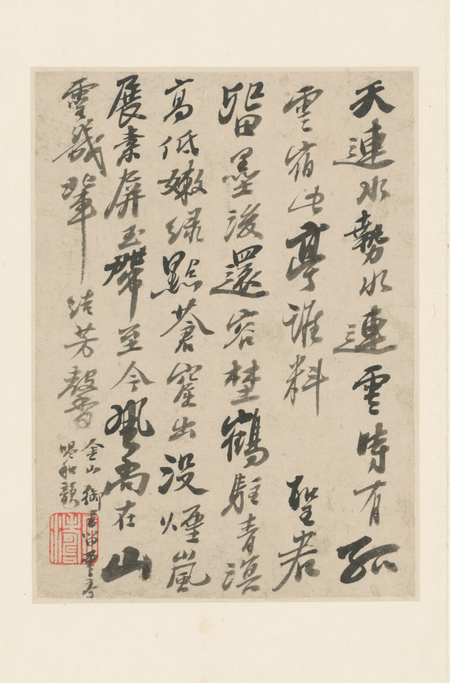 天連水勢水連雲時有孤
雲宿此亭誰料 聖君
留墨後還容野鶴駐青溟
高低嫩綠點蒼出沒煙嵐
展素屏玉帶至今風雨在山
靈幾輩結芳馨
金山御書留雲亭
和韻